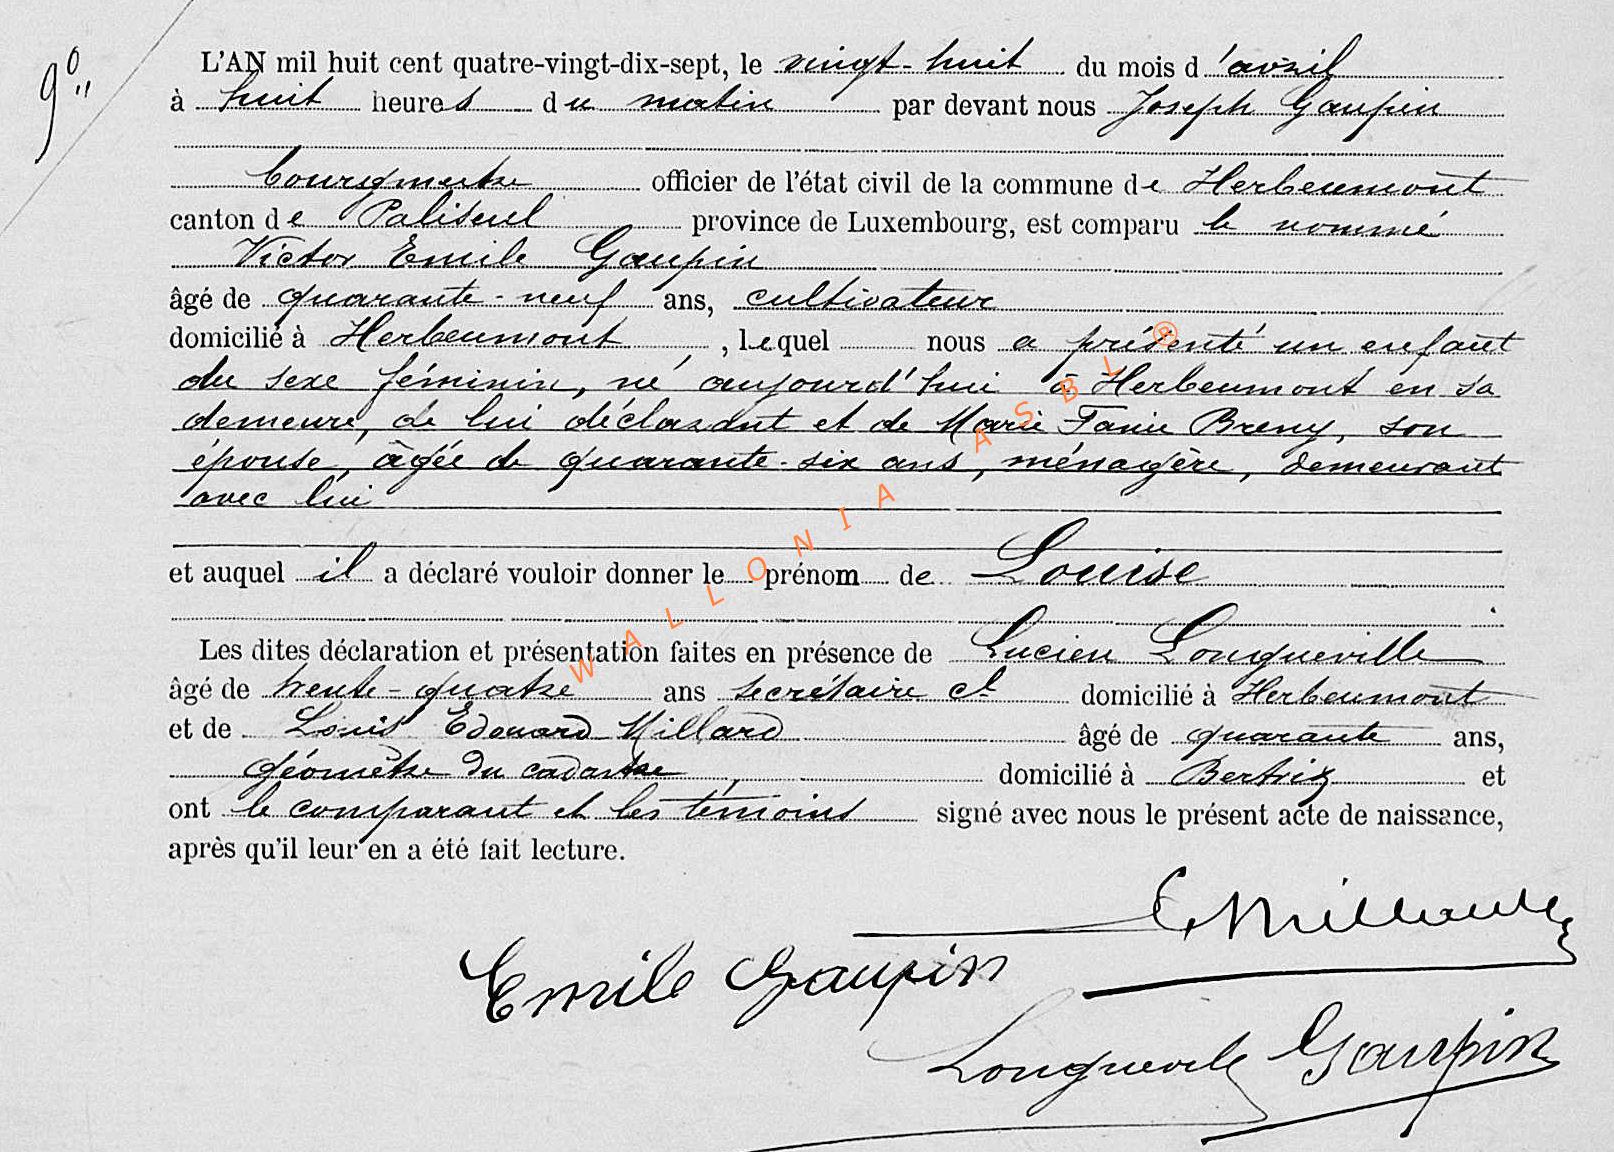 9°
L'AN mil huit cent quatre-vingt-dix-sept, le vingt-huit du mois d'avril
à huit heures du matin par devant nous Joseph Gaupin
bourgmestre officier de l'état civil de la commune de Herbeumont
canton de Paliseul province de Luxembourg, est comparu le nommé
Victor Emile Gaupin
âgé de quarante-neuf ans, cultivateur
domicilié à Herbeumont, lequel nous a présenté un enfant
du sexe féminin, né aujourd'hui à Herbeumont en sa
demeure, de lui déclarant et de Marie Fanie Breny, son
épouse, âgée de quarante-six ans, ménagère, demeurant
avec lui
et auquel il a déclaré vouloir donner le prénom de Louise
Les dites déclaration et présentation faites en présence de Lucien Longueville
âgé de trente-quatre ans secrétaire cl domicilié à Herbeumont
et de Louis Edouard Millard âgé de quarante ans,
géomètre du cadastre, domicilié à Bertrix et
ont le comparant et les témoins signé avec nous le présent acte de naissance,
après qu'il leur en a été fait lecture.
E Millard
Emile Gaupin
Longueville Gaupin
WALLONIA ASBL ®